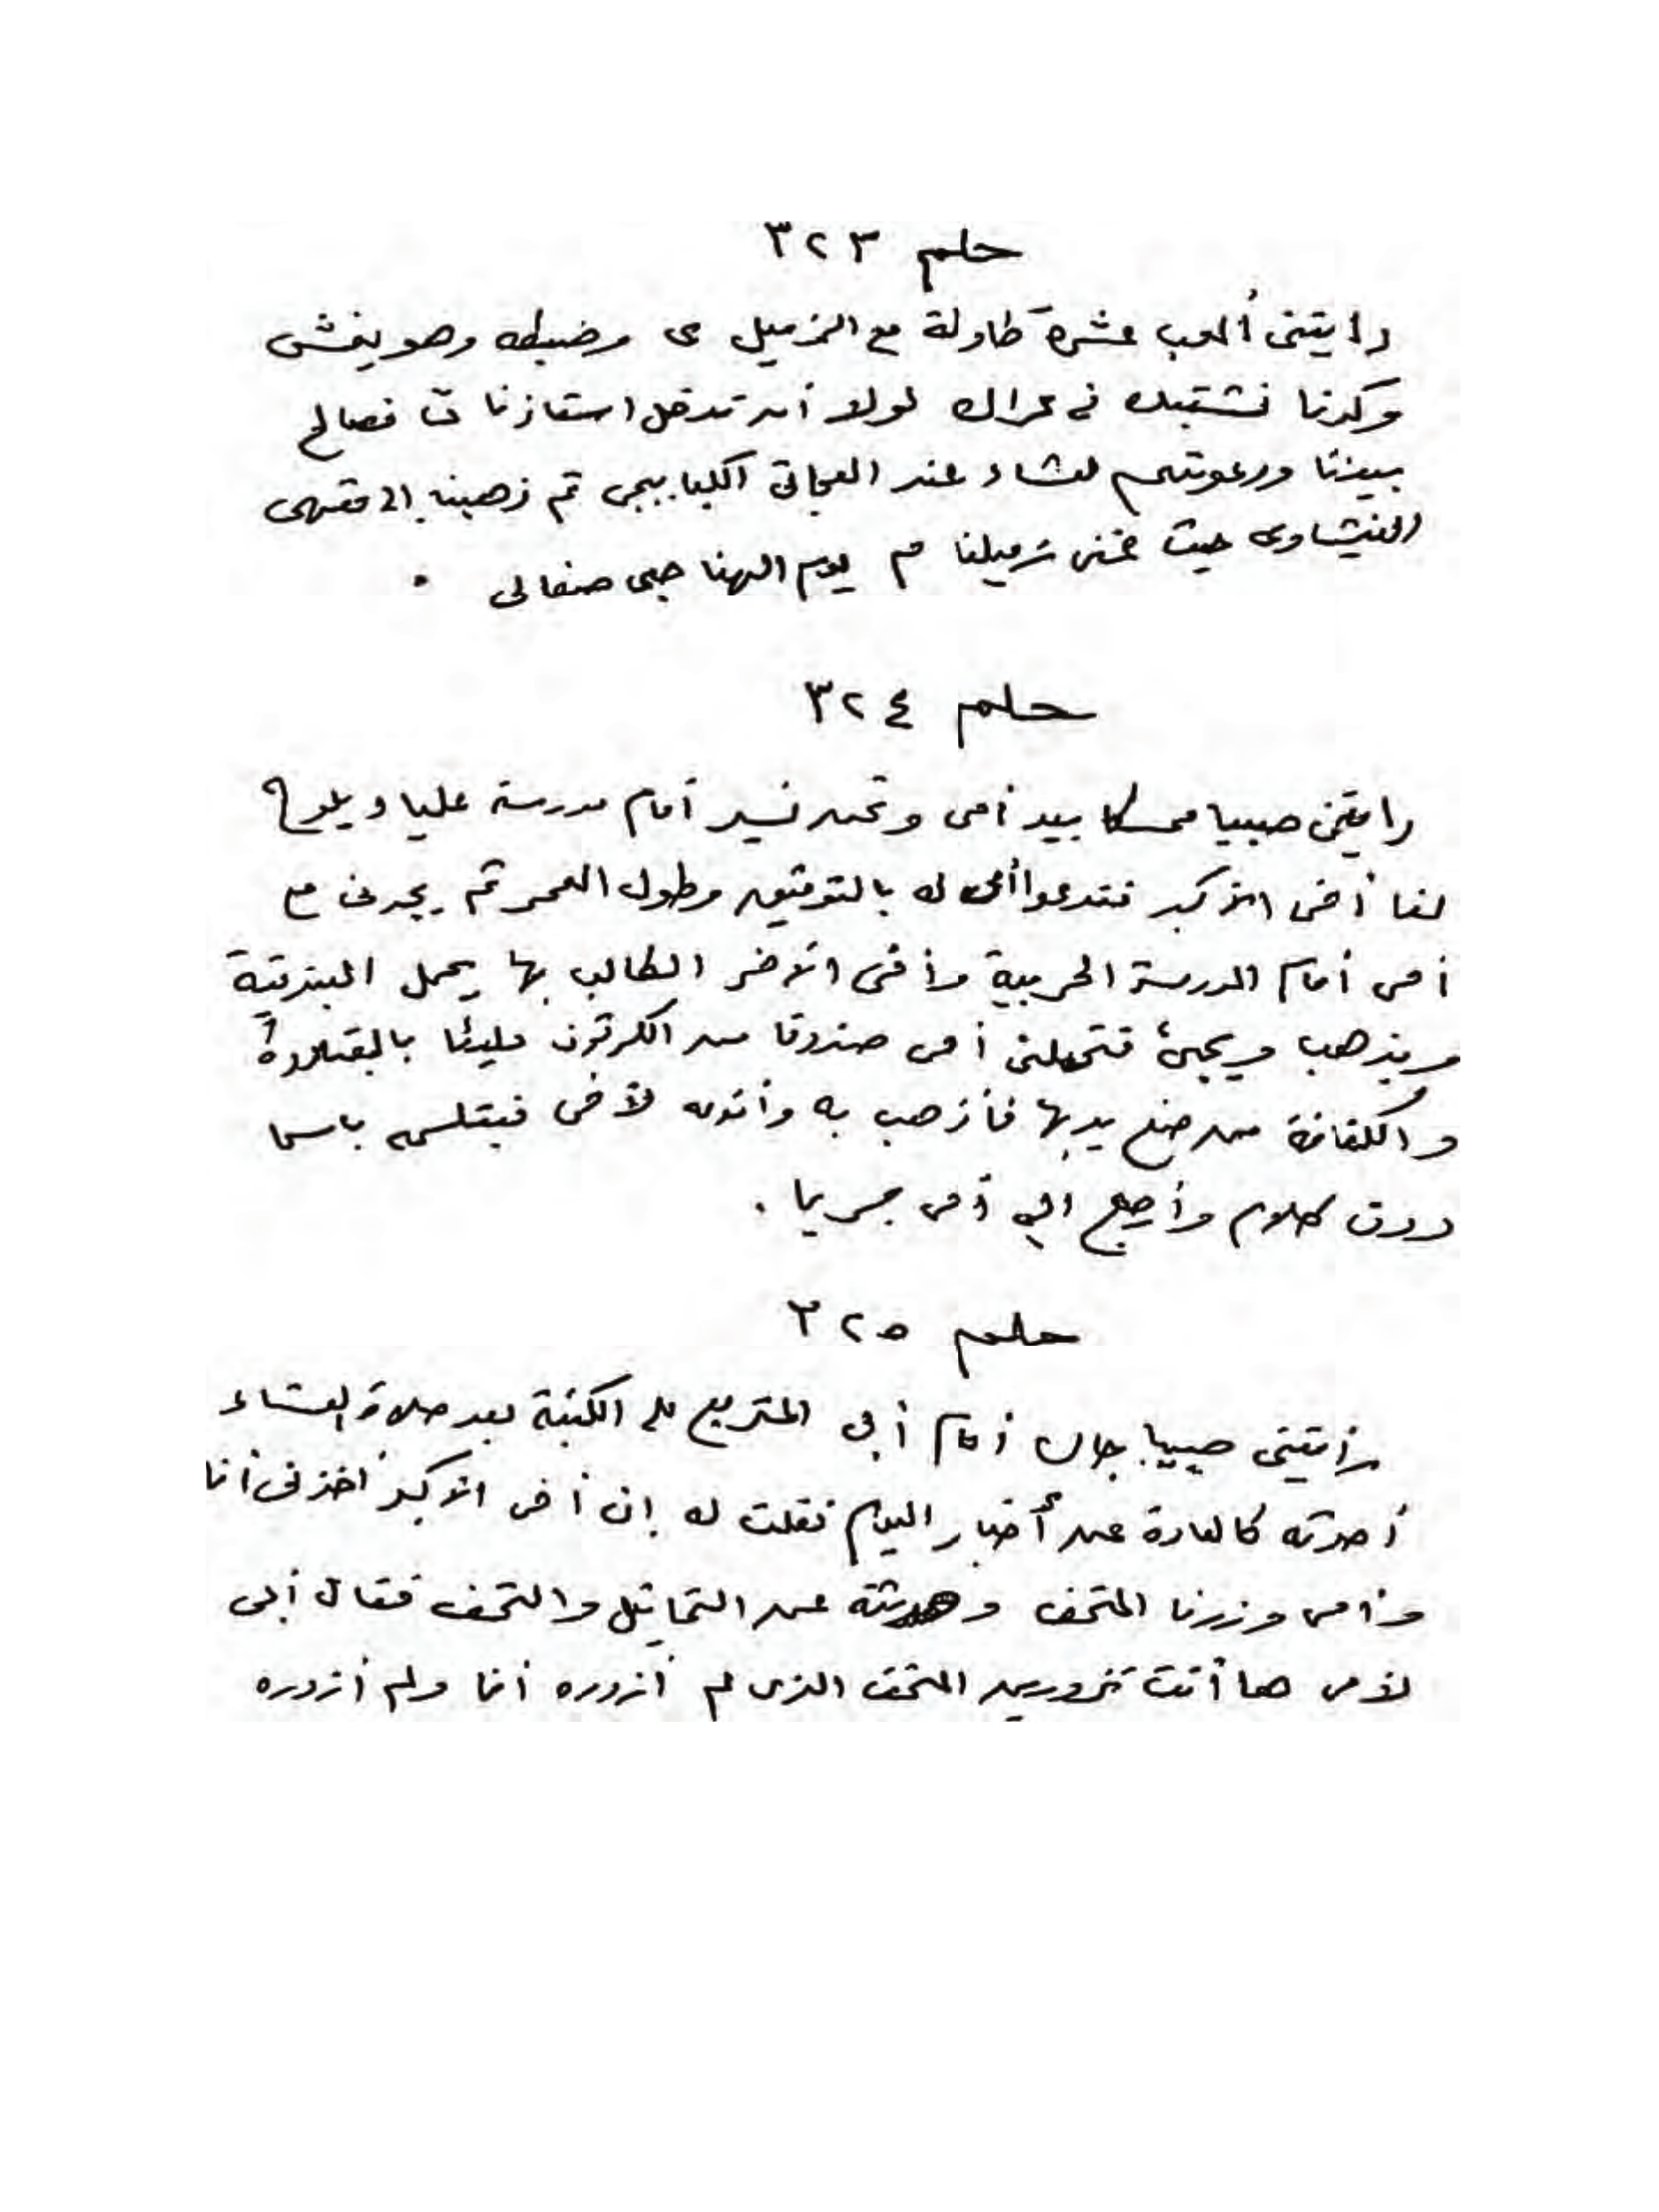 حلم ٣٢٣
رأيتنى ألعب عشرة طاولة مع الزميل ى وضبطه وهو يغش
وكدنا نشتبك فى عراك لولا أن تدخل أستاذنا ت فصالح
بيننا ودعوتهم لعشاء عند العجاتى الكبابجى ثم ذهبنا إلى مقهى
الفيشاوى حيث غنى زميلنا م يوم الهنا حبى صفالى .
حلم ٣٢٤
رأيتنى صبيا ممسكا بيد أمى ونحن نسير أمام مدرسة عليا ويلوح
لنا أخى الأكبر فتدعوا أمى له بالتوفيق وطول العمر ثم يجدنى مع
أمى أمام المدرسة الحربية وأخى الآخر الطالب بها يحمل البندقية
ويذهب ويجئ فتحملنى أمى صندوقا من الكرتون مليئا بالبقلاوة
والكنافة من صنع يديها فأذهب به وأقدمه لأخى فيتلمسه باسما
دون كلام وأرجع إلى أمى جريا .
حلم ٣٢٥
رأيتنى صبيا جالس أمام أبى المتربع على الكنبة بعد صلاة العشاء
أحدثه كالعادة عن أخبار اليوم فقلت له إن أخى الأكبر أخذنى أنا
وأمى وزرنا المتحف وحدثته عن التماثيل والتحف فقال أبى
لأمى ها أنت تزورين المتحف الذى لم أزوره أنا ولم أزوره